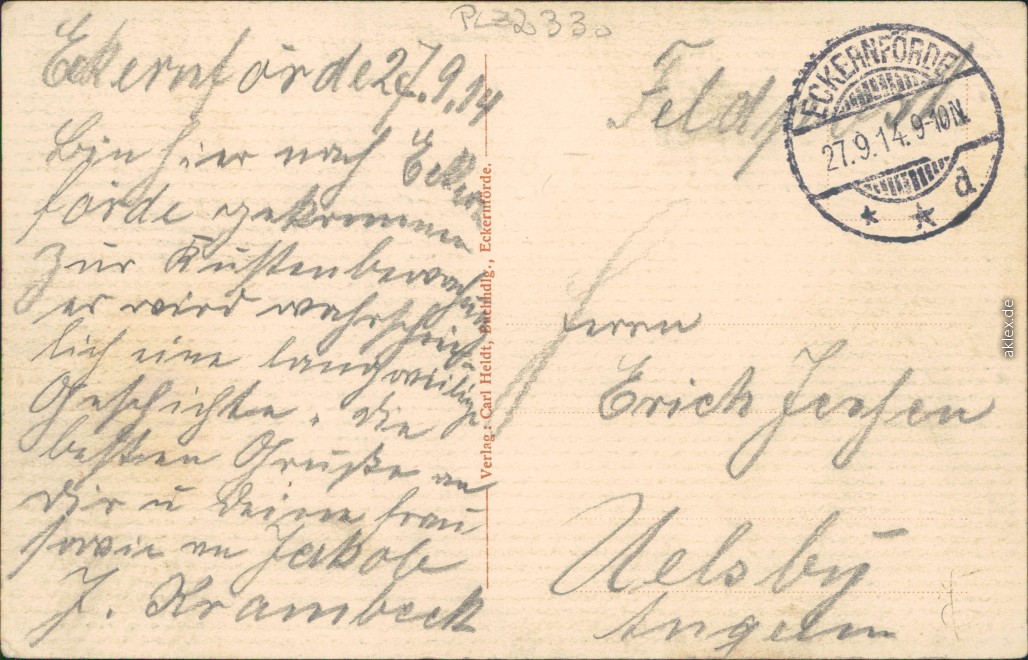 PLZ 2330
Eckernförde 27.9.14
Bin hier nach Eckern
förde gekommen
zur Küstenbewachung
es wird wahrschein
lich eine langweilige
Geschichte. die
besten Grüße an
Dir u Deine Frau
sowie an Jakob
J. Krambeck
Verlag: Carl Heldt, Buchhdlg., Eckernförde.
Feldpost
ECKERNFÖRDE
27.9.14.9-10N.
* * a
Herrn
Erich Jessen
Uelsby
Angeln
aklex.de